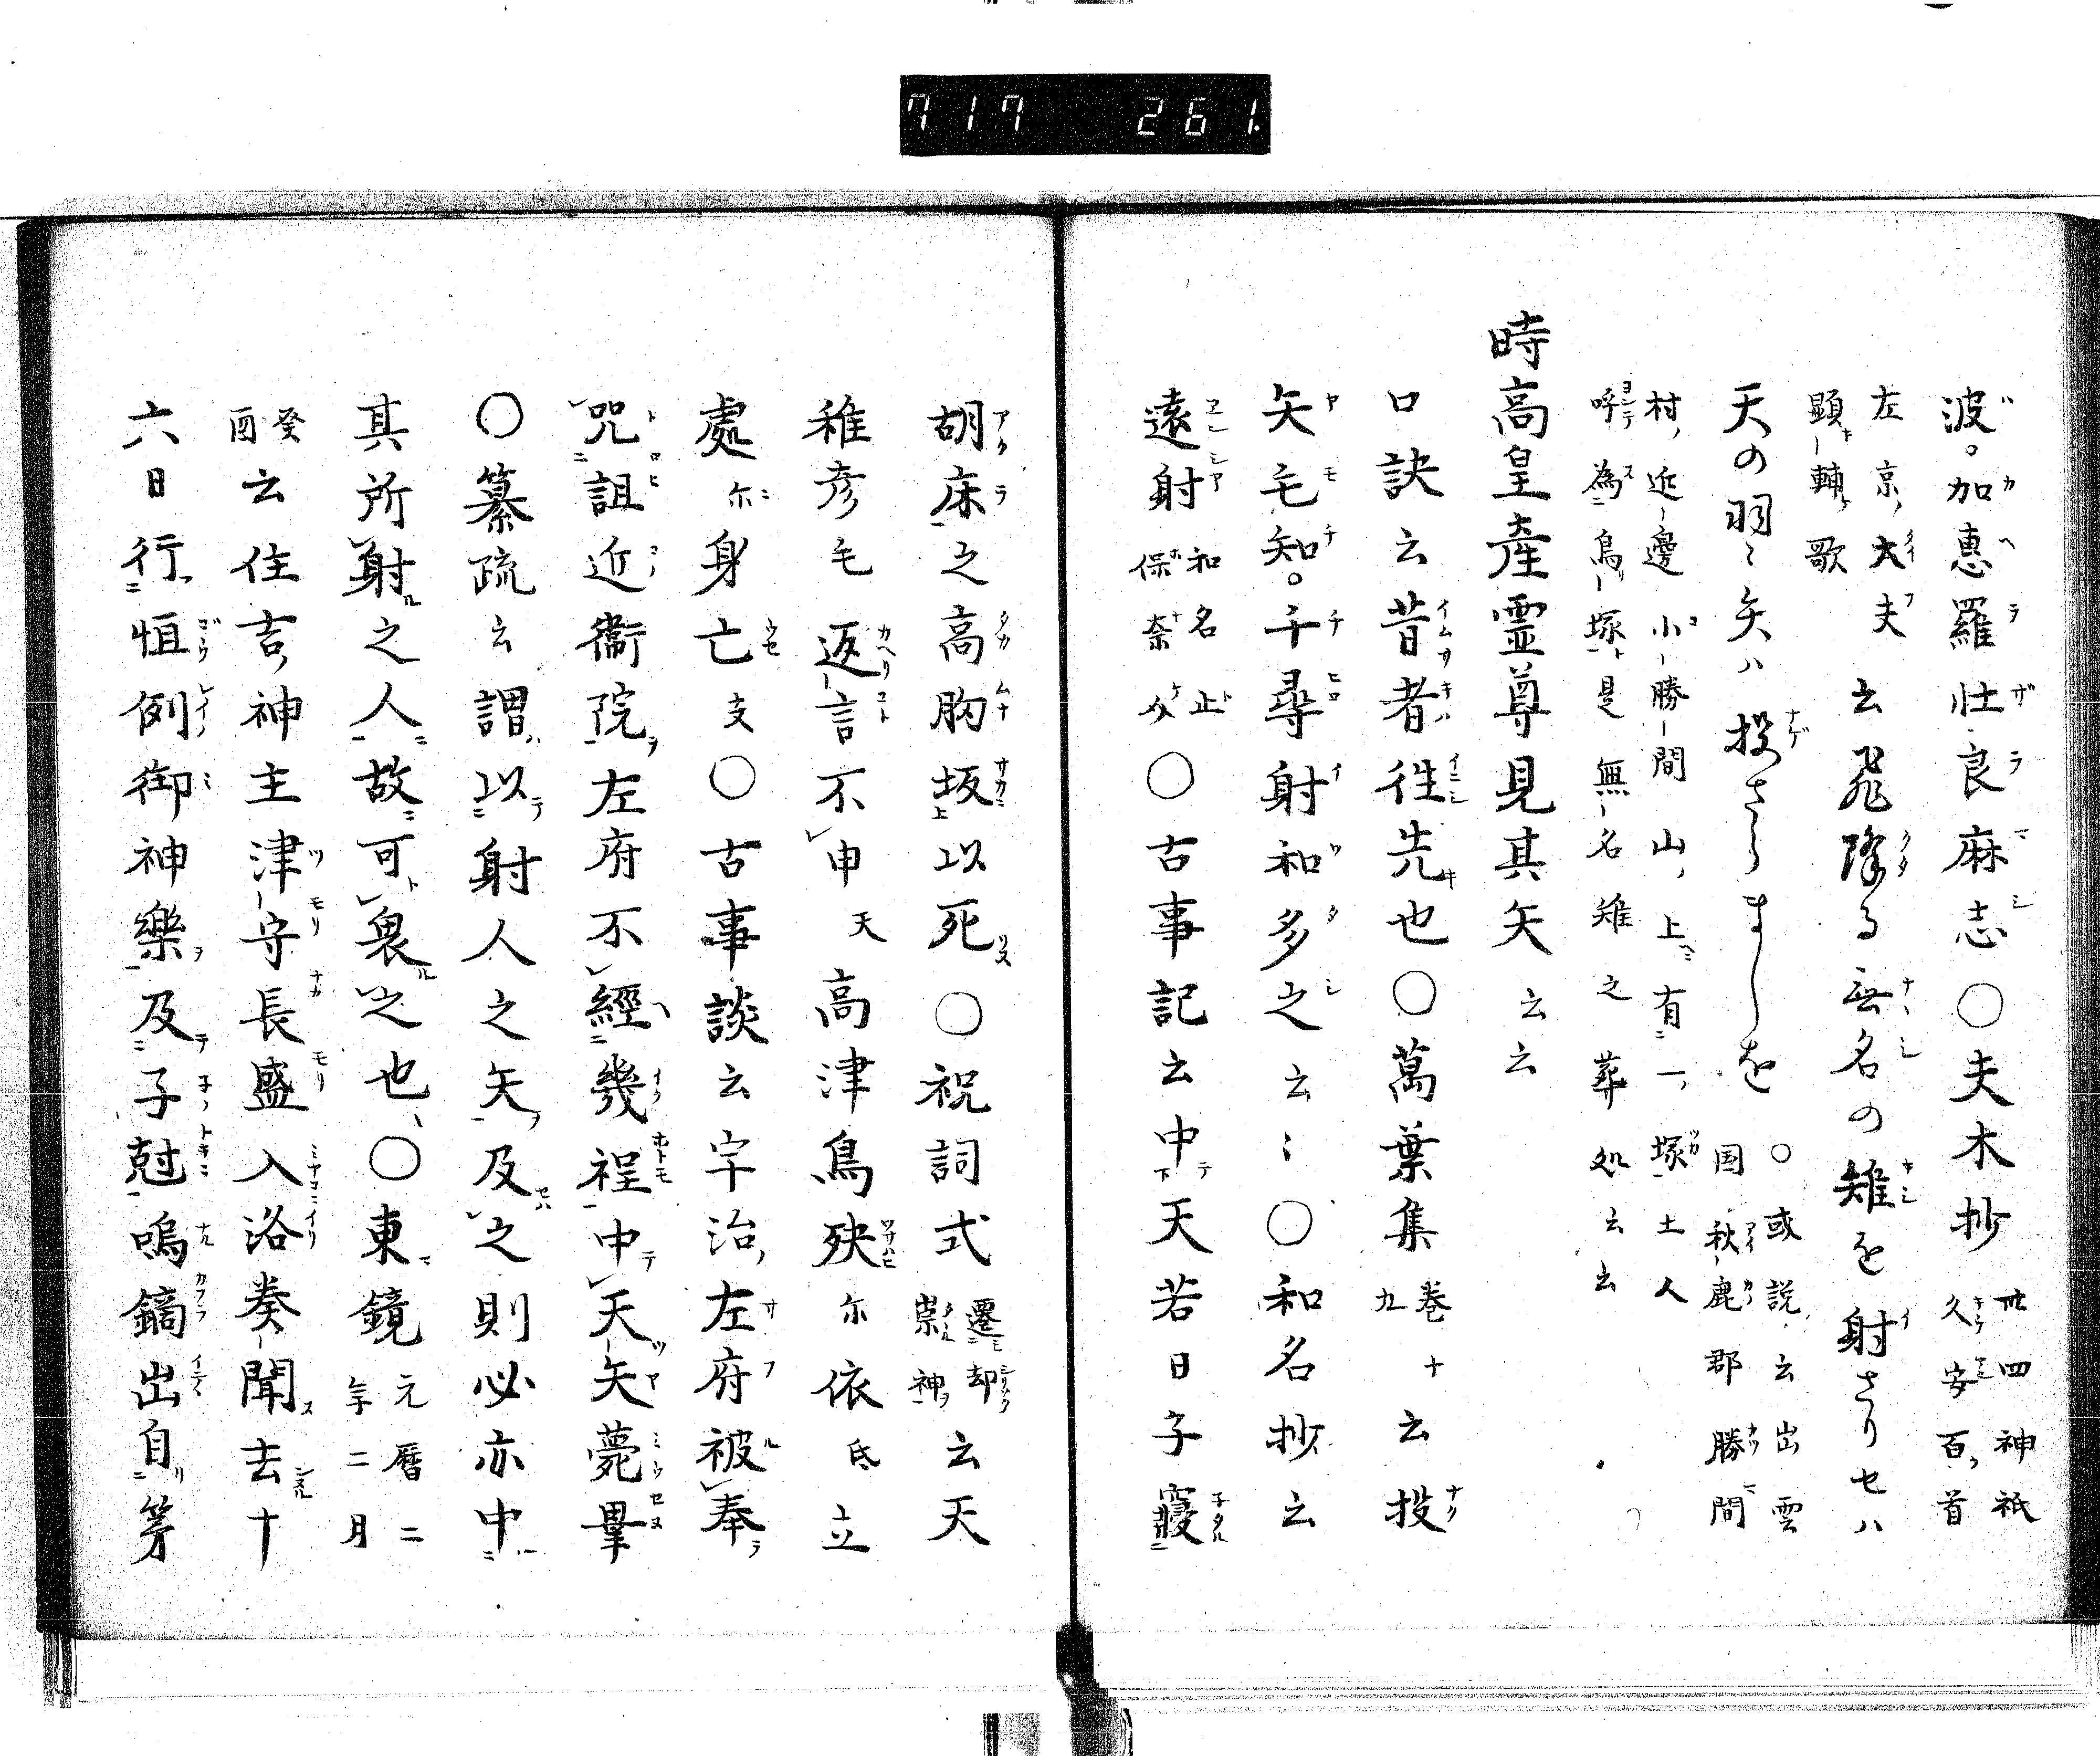 717 261.
波。加惠羅壮良麻志〇夫木抄 卅四神祇久安百首
左京大夫顕輔歌 云飛降る無名の雉を射さりせハ
天の羽〻矢ハ投さらましを 〇或説云出雲国秋鹿郡勝間
村近邊小勝間山上有一塚土人呼為鳥塚是無名雉之葬処云云
時高皇産霊尊見其矢云云
口訣云昔者徃先也〇萬葉集 巻十九 云投
矢毛知。千尋射和多之云〻〇和名抄云
遠射 和名止保奈介〇古事記云中天若日子寢
胡床之高胸坂以死〇祝詞式 遷却崇神 云天
稚彦毛返言不申天高津鳥殃尓依氐立
處尓身亡支〇古事談云宇治左府被奉
咒詛近衞院左府不經幾程中天矢薨畢
〇纂疏云謂以射人之矢及之則必亦中
其所射之人故可異之也〇東鏡 元暦二年二月
癸酉 云住吉神主津守長盛入洛奏聞去十
六日行恒例御神樂及子尅鳴鏑出自第